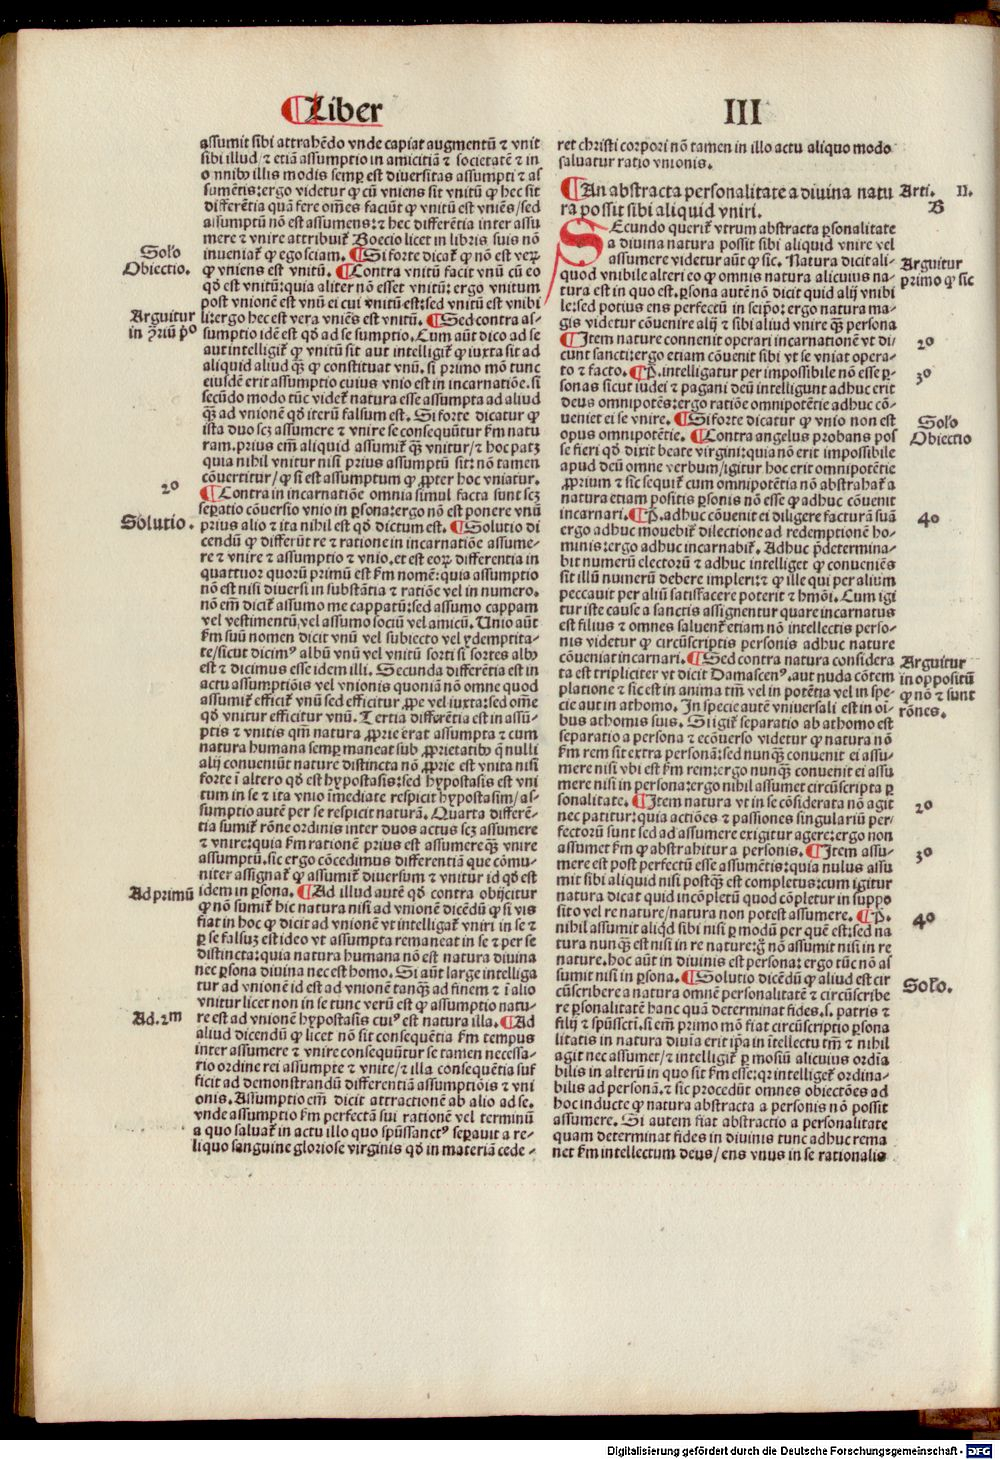 ¶Liber
III
assumit sibi attrahēdo vnde capiat augmentū ⁊ vnit
sibi illud/⁊ etiā assumptio in amicitiā ⁊ societatē ⁊ in
o nnibꝰ illis modis semꝑ est diuersitas assumpti ⁊ as
sumētis:ergo videtur ꝙ cū vniens sit vnitū ꝙ hec sit
differētia quā fere oēs faciūt ꝙ vnitū est vniēs/sed
assumptū nō est assumens:⁊ hec differētia inter assu
mere ⁊ vnire attribuit᷑ Boecio licet in libris suis nō
inueniat᷑ ꝙ ego sciam. ¶Si forte dicat᷑ ꝙ nō est veꝝ
ꝙ vniens est vnitū. ¶Contra vnitū facit vnū cū eo
qd̄ est vnitū:quia aliter nō esset vnitū: ergo vnitum
post vnionē est vnū ei cui vnitū est:sed vnitū est vnibi
li:ergo hec est vera vniēs est vnitū. ¶Sed contra as-
sumptio idē est qd̄ ad se sumptio. Cum aūt dico ad se
aut intelligit᷑ ꝙ vnitū sit aut intelligit᷑ ꝙ iuxta sit ad
aliquid aliud qꝫ ꝙ constituat vnū. si primo mō tunc
eiusdē erit assumptio cuius vnio est in incarnatiōe. si
secūdo modo tūc videt᷑ natura esse assumpta ad aliud
qꝫ ad vnionē qd̄ iterū falsum est. Si forte dicatur ꝙ
ista duo scꝫ assumere ⁊ vnire se consequūtur s̄m natu
ram. prius em̄ aliquid assumit᷑ qꝫ vnitur/⁊ hoc patꝫ
quia nihil vnitur nisi prius assumptū sit: nō tamen
cōuertitur/ꝙ si est assumptum ꝙ ꝓpter hoc vniatur.
¶Contra in incarnatiōe omnia simul facta sunt scꝫ
seꝑatio cōuersio vnio in ꝑsona:ergo nō est ponere vnū
prius alio ⁊ ita nihil est qd̄ dictum est. ¶Solutio di
cendū ꝙ differūt re ⁊ ratione in incarnatiōe assume-
re ⁊ vnire ⁊ assumptio ⁊ vnio. et est eoꝝ differentia in
quattuor quorū primū est s̄m nomē: quia assumptio
nō est nisi diuersi in substātia ⁊ ratiōe vel in numero.
nō em̄ dicit᷑ assumo me cappatū: sed assumo cappam
vel vestimentū, vel assumo sociū vel amicū. Unio aūt
s̄m suū nomen dicit vnū vel subiecto vel ydemptita-
te/sicut dicimꝰ albū vnū vel vnitū sorti si sortes albꝰ
est ⁊ dicimus esse idem illi. Secunda differētia est in
actu assumptiōis vel vnionis quoniā nō omne quod
assumit᷑ efficit᷑ vnū sed efficitur ꝓpe vel iuxta:sed oīe
qd̄ vnitur efficitur vnū. Tertia differētia est in assū-
ptis ⁊ vnitis qm̄ natura ꝓprie erat assumpta ⁊ cum
natura humana semꝑ maneat sub ꝓprietatibꝰ q̄ nulli
alij conueniūt nature distincta nō ꝓprie est vnita nisi
forte ī altero qd̄ est hypostasis:sed hypostasis est vni
tum in se ⁊ ita vnio īmediate respicit hypostasim/as-
sumptio autē per se respicit naturā. Quarta differē-
tia sumit᷑ rōne ordinis inter duos actus scꝫ assumere
⁊ vnire:quia s̄m rationē prius est assumere qꝫ vnire
assumptū. sic ergo cōcedimus differentiā que cōmu-
niter assignat᷑ ꝙ assumit᷑ diuersum ⁊ vnitur id qd̄ est
idem in ꝑsona. ¶Ad illud autē qd̄ contra obijcitur
ꝙ nō sumit᷑ hic natura nisi ad vnionē dicēdū ꝙ si vis
fiat in hoc ꝙ dicit ad vnionē vt intelligat᷑ vniri in se ⁊
ꝑ se falsuꝫ est ideo vt assumpta remaneat in se ⁊ per se
distincta:quia natura humana nō est natura diuina
nec ꝑsona diuina nec est homo. Si aūt large intelliga
tur ad vnionē id est ad vnionē tanqꝫ ad finem ⁊ ī alio
vnitur licet non in se tunc verū est ꝙ assumptio natu-
re est ad vnionē hypostasis cuiꝰ est natura illa. ¶Ad
aliud dicendū ꝙ licet nō sit consequētia s̄m tempus
inter assumere ⁊ vnire consequūtur se tamen necessa-
rio ordine rei assumpte ⁊ vnite/⁊ illa consequētia suf
ficit ad demonstrandū differentiā assumptiōis ⁊ vni
onis. Assumptio em̄ dicit attractionē ab alio ad se.
vnde assumptio s̄m perfectā sui rationē vel terminū
a quo saluat᷑ in actu illo quo spūssanctꝰ seꝑauit a re-
liquo sanguine gloriose virginis qd̄ in materiā cede-
Solo
Obiectio.
Arguitur
in ꝯriū pº
2º
Solutio.
Ad primū
Ad.2m
ret christi corpori nō tamen in illo actu aliquo modo
saluatur ratio vnionis.
¶An abstracta personalitate a diuina natu
ra possit sibi aliquid vniri.
SEcundo querit᷑ vtrum abstracta ꝑsonalitate
a diuina natura possit sibi aliquid vnire vel
assumere videtur aūt ꝙ sic. Natura dicit ali-
quod vnibile alteri eo ꝙ omnis natura alicuius na-
tura est in quo est. ꝑsona autē nō dicit quid alij vnibi
le:sed potius ens perfectū in seipo: ergo natura ma-
gis videtur cōuenire alij ⁊ sibi aliud vnire qꝫ persona
¶Item nature conuenit operari incarnationē vt di-
cunt sancti:ergo etiam cōuenit sibi vt se vniat opera-
to ⁊ facto. ¶P. intelligatur per impossibile nō esse ꝑ-
sonas sicut iudei ⁊ pagani deū intelligunt adhuc erit
deus omnipotēs:ergo ratiōe omnipotētie adhuc cō-
ueniet ei se vnire. ¶Si forte dicatur ꝙ vnio non est
opus omnipotētie. ¶Contra angelus probans pos
se fieri qd̄ dixit beate virgini:quia nō erit impossibile
apud deū omne verbum/igitur hoc erit omnipotētie
ꝓprium ⁊ sic sequit᷑ cum omnipotētia nō abstrahat᷑ a
natura etiam positis ꝑsonis nō esse ꝙ adhuc cōuenit
incarnari. ¶P. adhuc cōuenit ei diligere facturā suā
ergo adhuc mouebit᷑ dilectione ad redemptionē ho-
minis:ergo adhuc incarnabit᷑. Adhuc p̄determina-
bit numerū electorū ⁊ adhuc intelliget ꝙ conueniēs
sit illū numerū debere impleri:⁊ ꝙ ille qui per alium
peccauit per aliū satisfacere poterit ⁊ hmōi. Cum igi
tur iste cause a sanctis assignentur quare incarnatus
est filius ⁊ omnes saluent᷑ etiam nō intellectis perso-
nis videtur ꝙ circūscriptis personis adhuc nature
cōueniat incarnari. ¶Sed contra natura considera
ta est tripliciter vt dicit Damascenꝰ. aut nuda cōtem
platione ⁊ sic est in anima tm̄ vel in potētia vel in spe-
cie aut in athomo. In specie autē vniuersali est in oī-
bus athomis suis. Si igit᷑ separatio ab athomo est
separatio a persona ⁊ ecōuerso videtur ꝙ natura nō
s̄m rem sit extra personā:sed nunqꝫ conuenit ei assu-
mere nisi vbi est s̄m rem:ergo nunqꝫ conuenit ei assu
mere nisi in persona:ergo nihil assumet circūscripta ꝑ
sonalitate. ¶Item natura vt in se cōsiderata nō agit
nec patitur:quia actiōes ⁊ passiones singulariū per-
fectorū sunt sed ad assumere exigitur agere:ergo non
assumet s̄m ꝙ abstrahitur a personis. ¶Item assu-
mere est post perfectū esse assumētis:quia nullus assu
mit sibi aliquid nisi postqꝫ est completus:cum igitur
natura dicat quid incōpletū quod cōpletur in suppo
sito vel re nature/natura non potest assumere. ¶P.
nihil assumit aliqd̄ sibi nisi ꝑ modū per quē est:sed na
tura nunqꝫ est nisi in re nature:g̊ nō assumit nisi in re
nature. hoc aūt in diuinis est persona: ergo tūc nō as
sumit nisi in ꝑsona. ¶Solutio dicēdū ꝙ aliud est cir
cūscribere a natura omnē personalitatē ⁊ circūscribe
re ꝑsonalitatē hanc quā determinat fides. s. patris ⁊
filij ⁊ spūssctī. si em̄ primo mō fiat circūscriptio ꝑsona
litatis in natura diuīa erit ip̄a in ītellectu tm̄ ⁊ nihil
agit nec assumet/⁊ intelligit᷑ ꝑ modū alicuius ordīa
bilis in alterū in quo sit s̄m esse:qr intelliget᷑ ordina-
bilis ad personā.⁊ sic procedūt omnes obiectōes ad
hoc inducte ꝙ natura abstracta a personis nō possit
assumere. Si autem fiat abstractio a personalitate
quam determinat fides in diuinis tunc adhuc rema
net s̄m intellectum deus/ens vnus in se rationalis
Arti. II.
B
Arguitur
primo ꝙ sic
2º
3º
Solo
Obiectio
4º
Arguitur
in oppositū
ꝙ nō ⁊ sunt
rōnes.
2º
3º
4º
Solo.
Digitalisierung gefördert durch die Deutsche Forschungsgemeinschaft - DFG